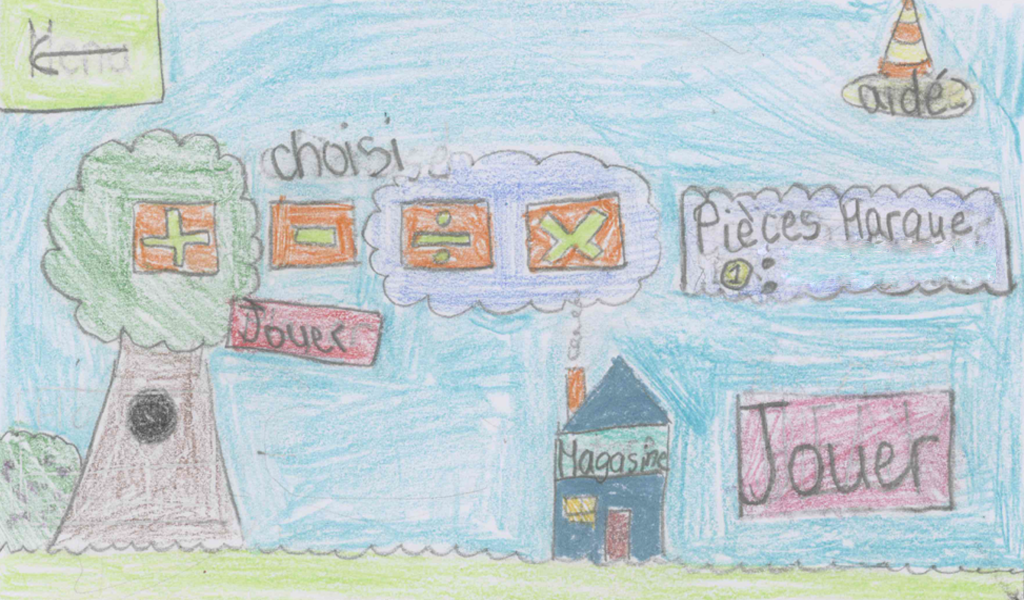 Menu
aidé
choisi
+ - ÷ ×
Pièces Marque
1 :
Jouer
Magasine
Jouer